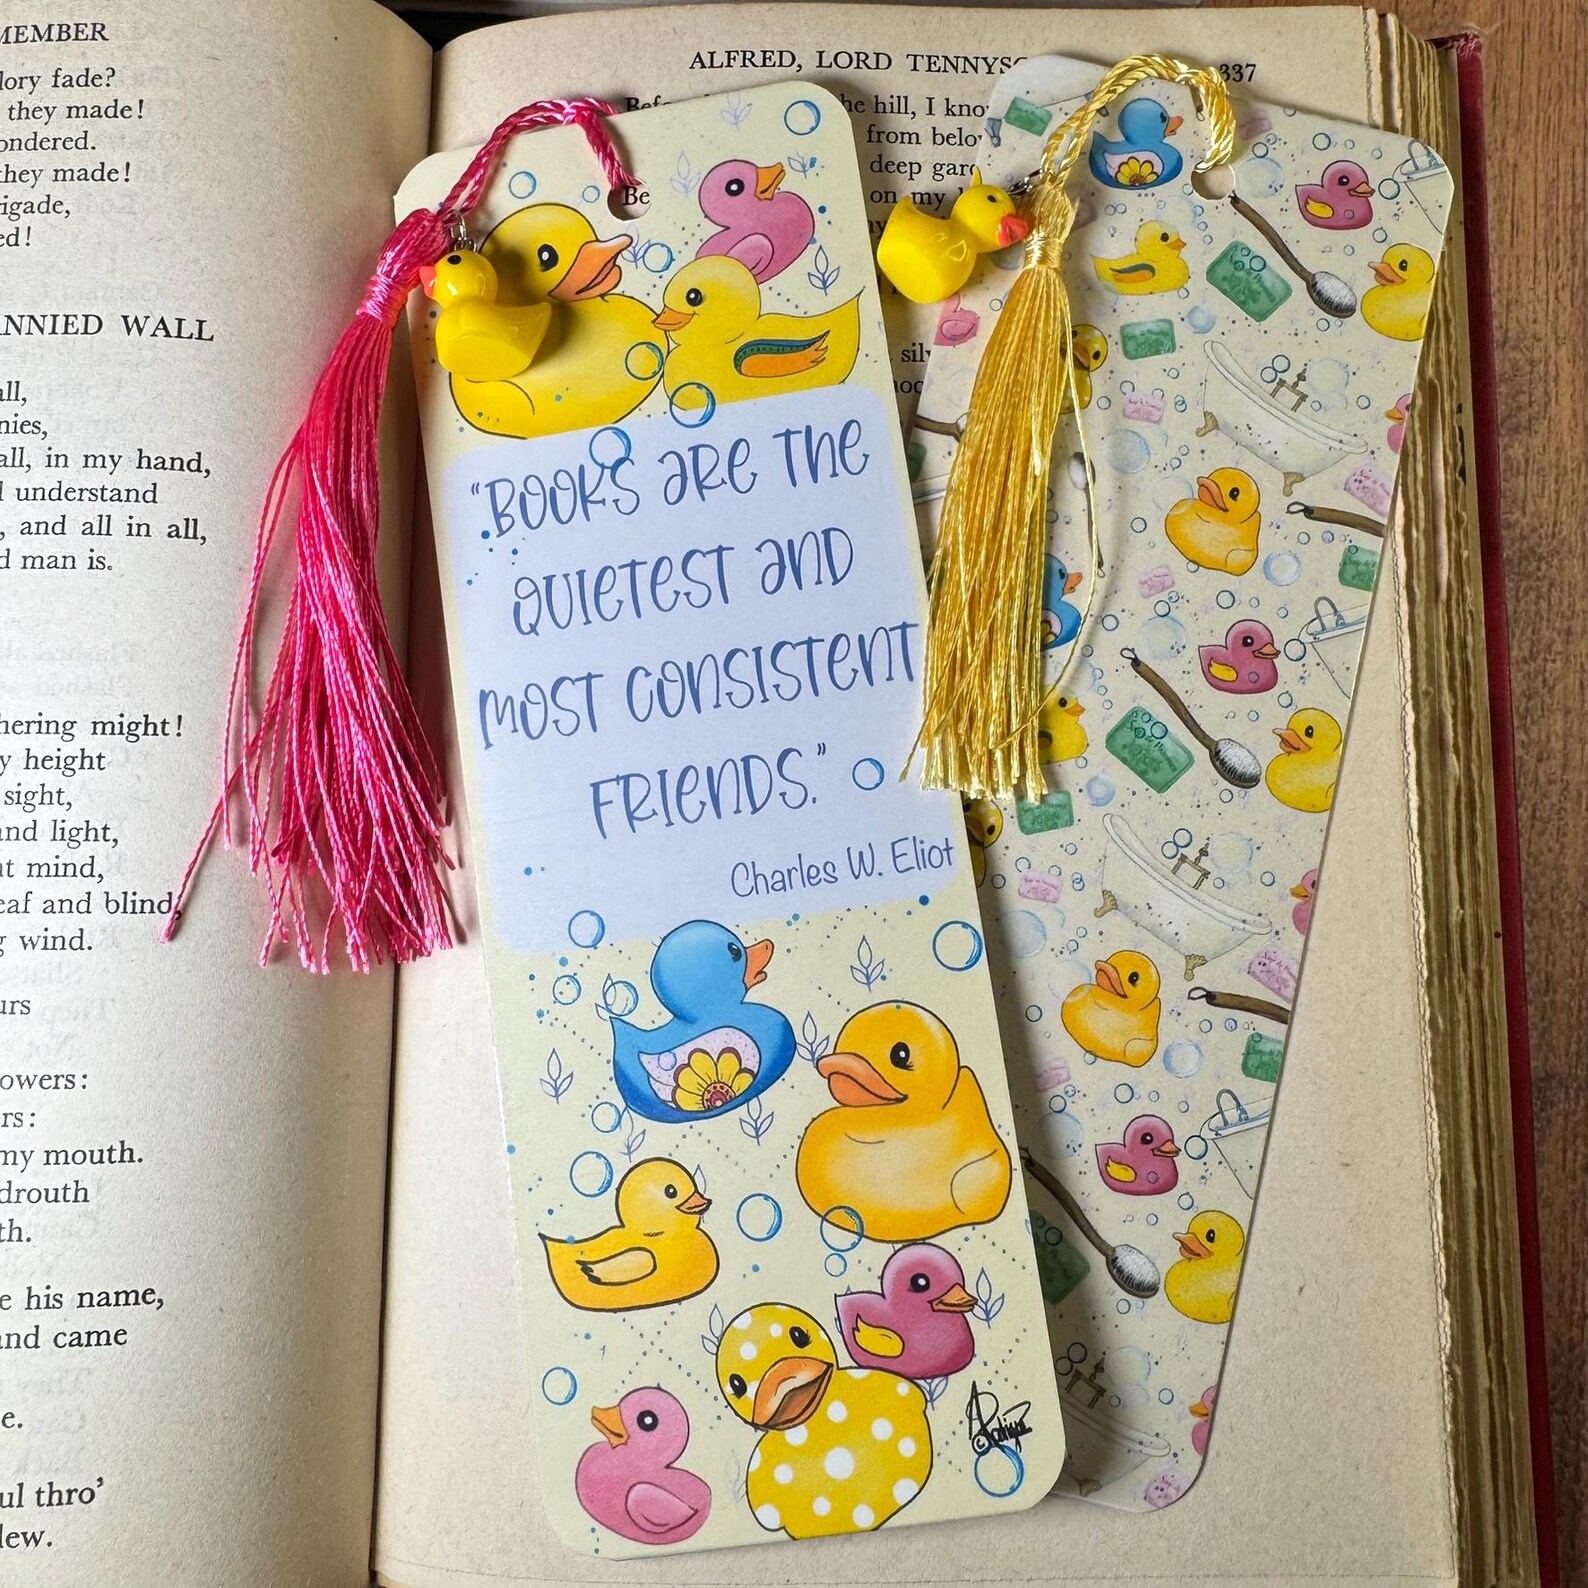 MEMBER
lory fade?
they made!
ondered.
they made!
igade,
ed!
ANNIED WALL
all,
nies,
all, in my hand,
understand
, and all in all,
d man is.
hering might!
y height
sight,
and light,
at mind,
eaf and blind,
g wind.
urs
owers:
ers:
my mouth.
drouth
th.
e his name,
and came
e.
ul thro'
lew.
ALFRED, LORD TENNYSO
337
he hill, I kno
from belo
deep gar
on my
Be
silv
"BOOKS ARE THE
QUIETEST AND
MOST CONSISTENT
FRIENDS."
Charles W. Eliot